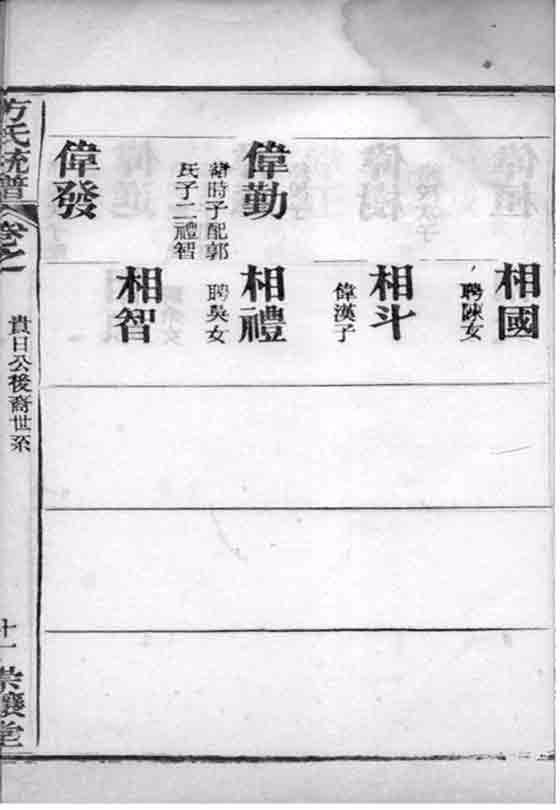 相國
聘陳女
相斗
偉漢子
偉勤
緒時子配郭
氏子二禮智
相禮
聘吳女
相智
偉發
方氏統譜
卷之
貴日公後裔世系
十一
崇讓堂